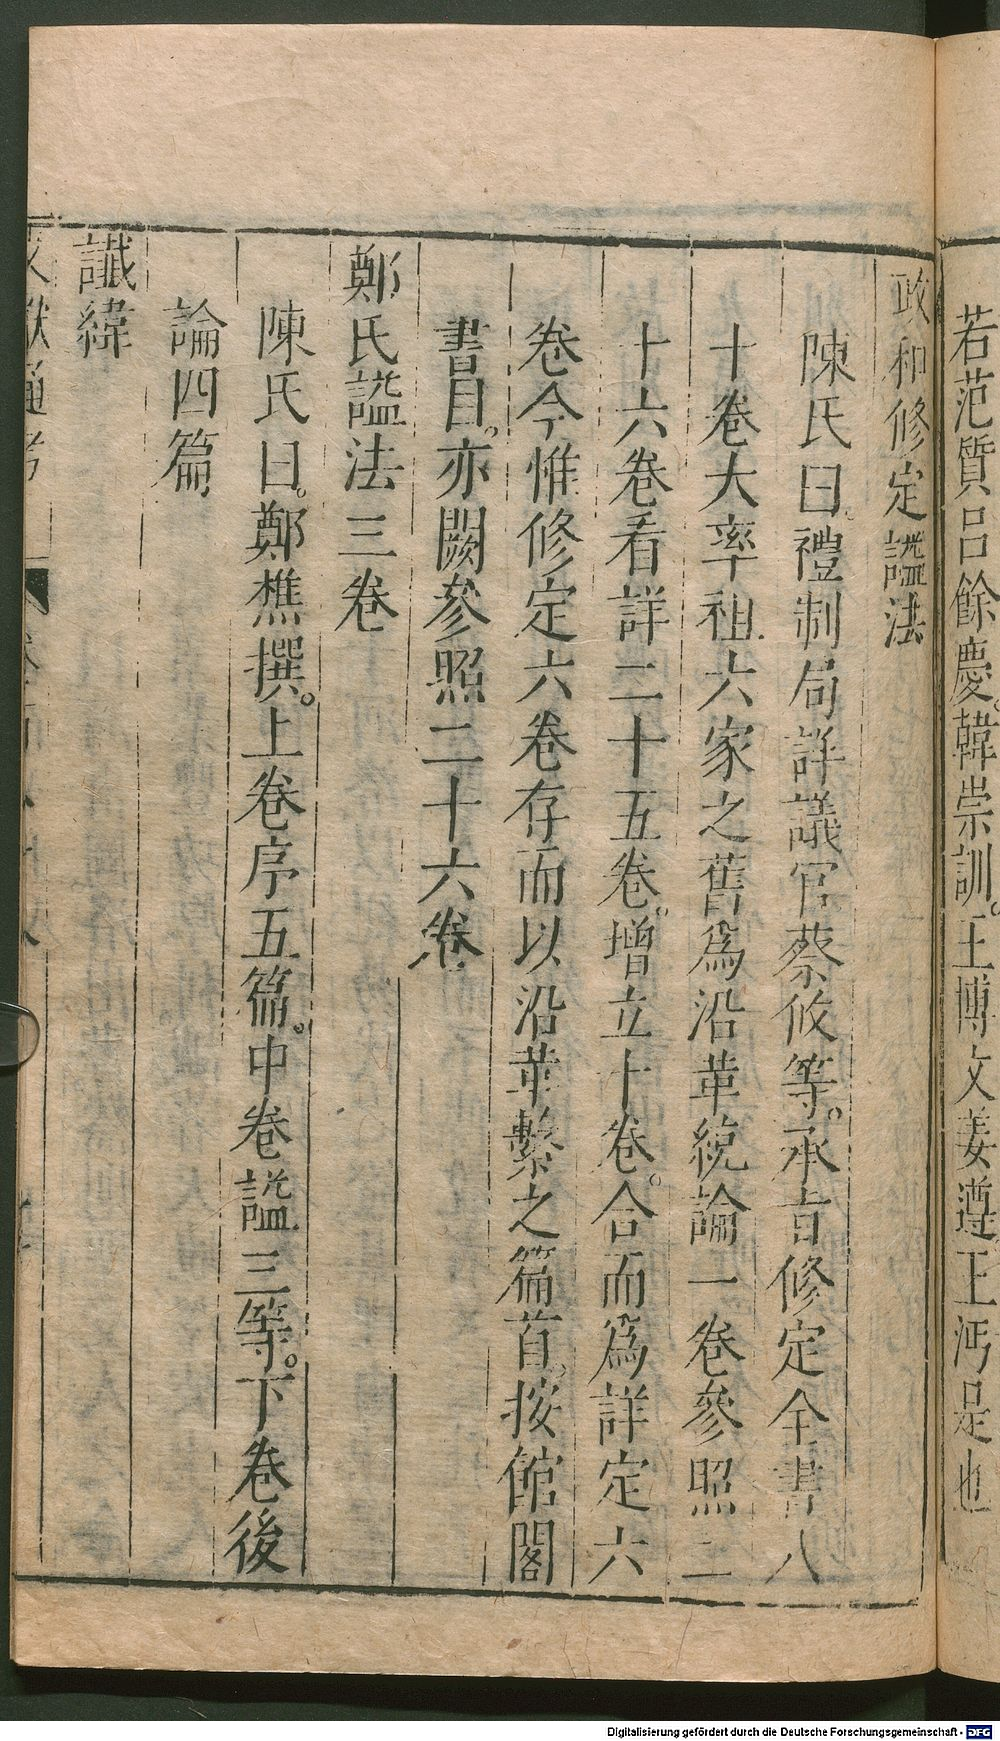 若范質呂餘慶。韓崇訓。王博文姜遵。王沔是也
政和修定諡法
陳氏曰。禮制局詳議官蔡攸等。承旨修定全書八
十卷大率祖六家之舊爲沿革統論一卷參照二
十六卷看詳二十五卷。增立十卷。合而爲詳定六
卷今惟修定六卷存而以沿革繫之篇首。按館閣
書目。亦闕參照二十六卷
鄭氏諡法三卷
陳氏曰。鄭樵撰。上卷序五篇。中卷諡三等。下卷後
論四篇
讖緯
文獻通考
Digitalisierung gefördert durch die Deutsche Forschungsgemeinschaft - DFG